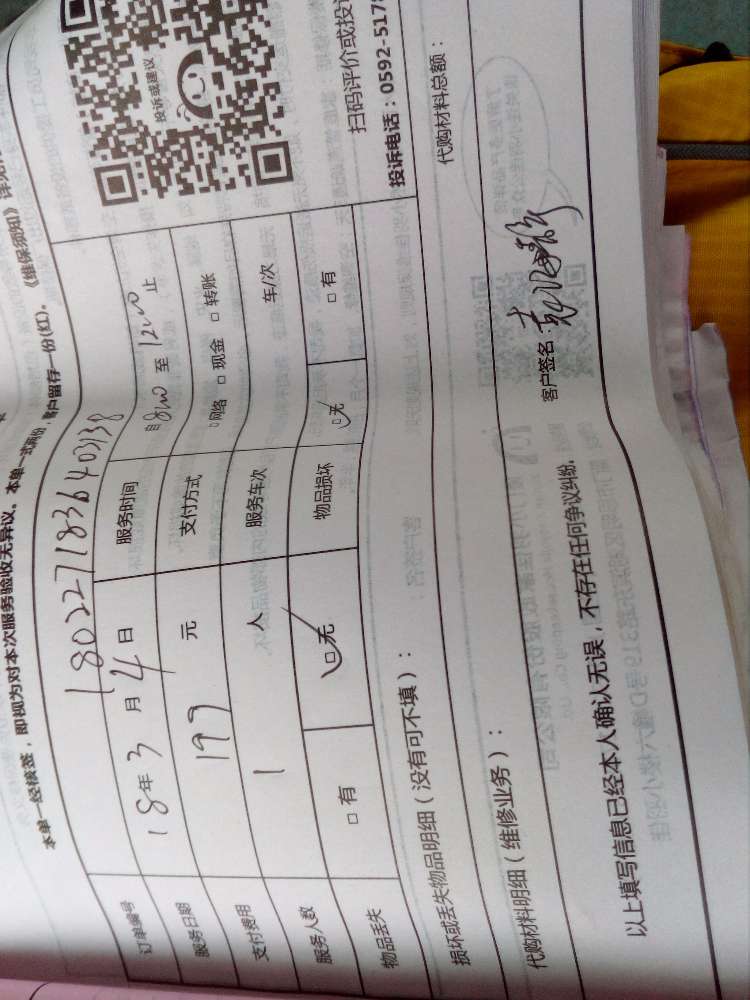 本单一经核签，即视为对本次服务验收无异议。本单一式两份，客户留存一份(红)。《维保须知》
订单编号 1802271836403138
服务日期 18年3月4日 服务时间 自8:00至12:00止
支付费用 197元 支付方式 □网络 □现金 □转账
服务人数 1人 服务车次 车/次
物品丢失 □有 □无 物品损坏 □无 □有
投诉或建议
扫码评价或投
投诉电话：0592-517
损坏或丢失物品明细（没有可不填）：
代购材料明细（维修业务）： 代购材料总额：
以上填写信息已经本人确认无误，不存在任何争议纠纷。 客户签名：